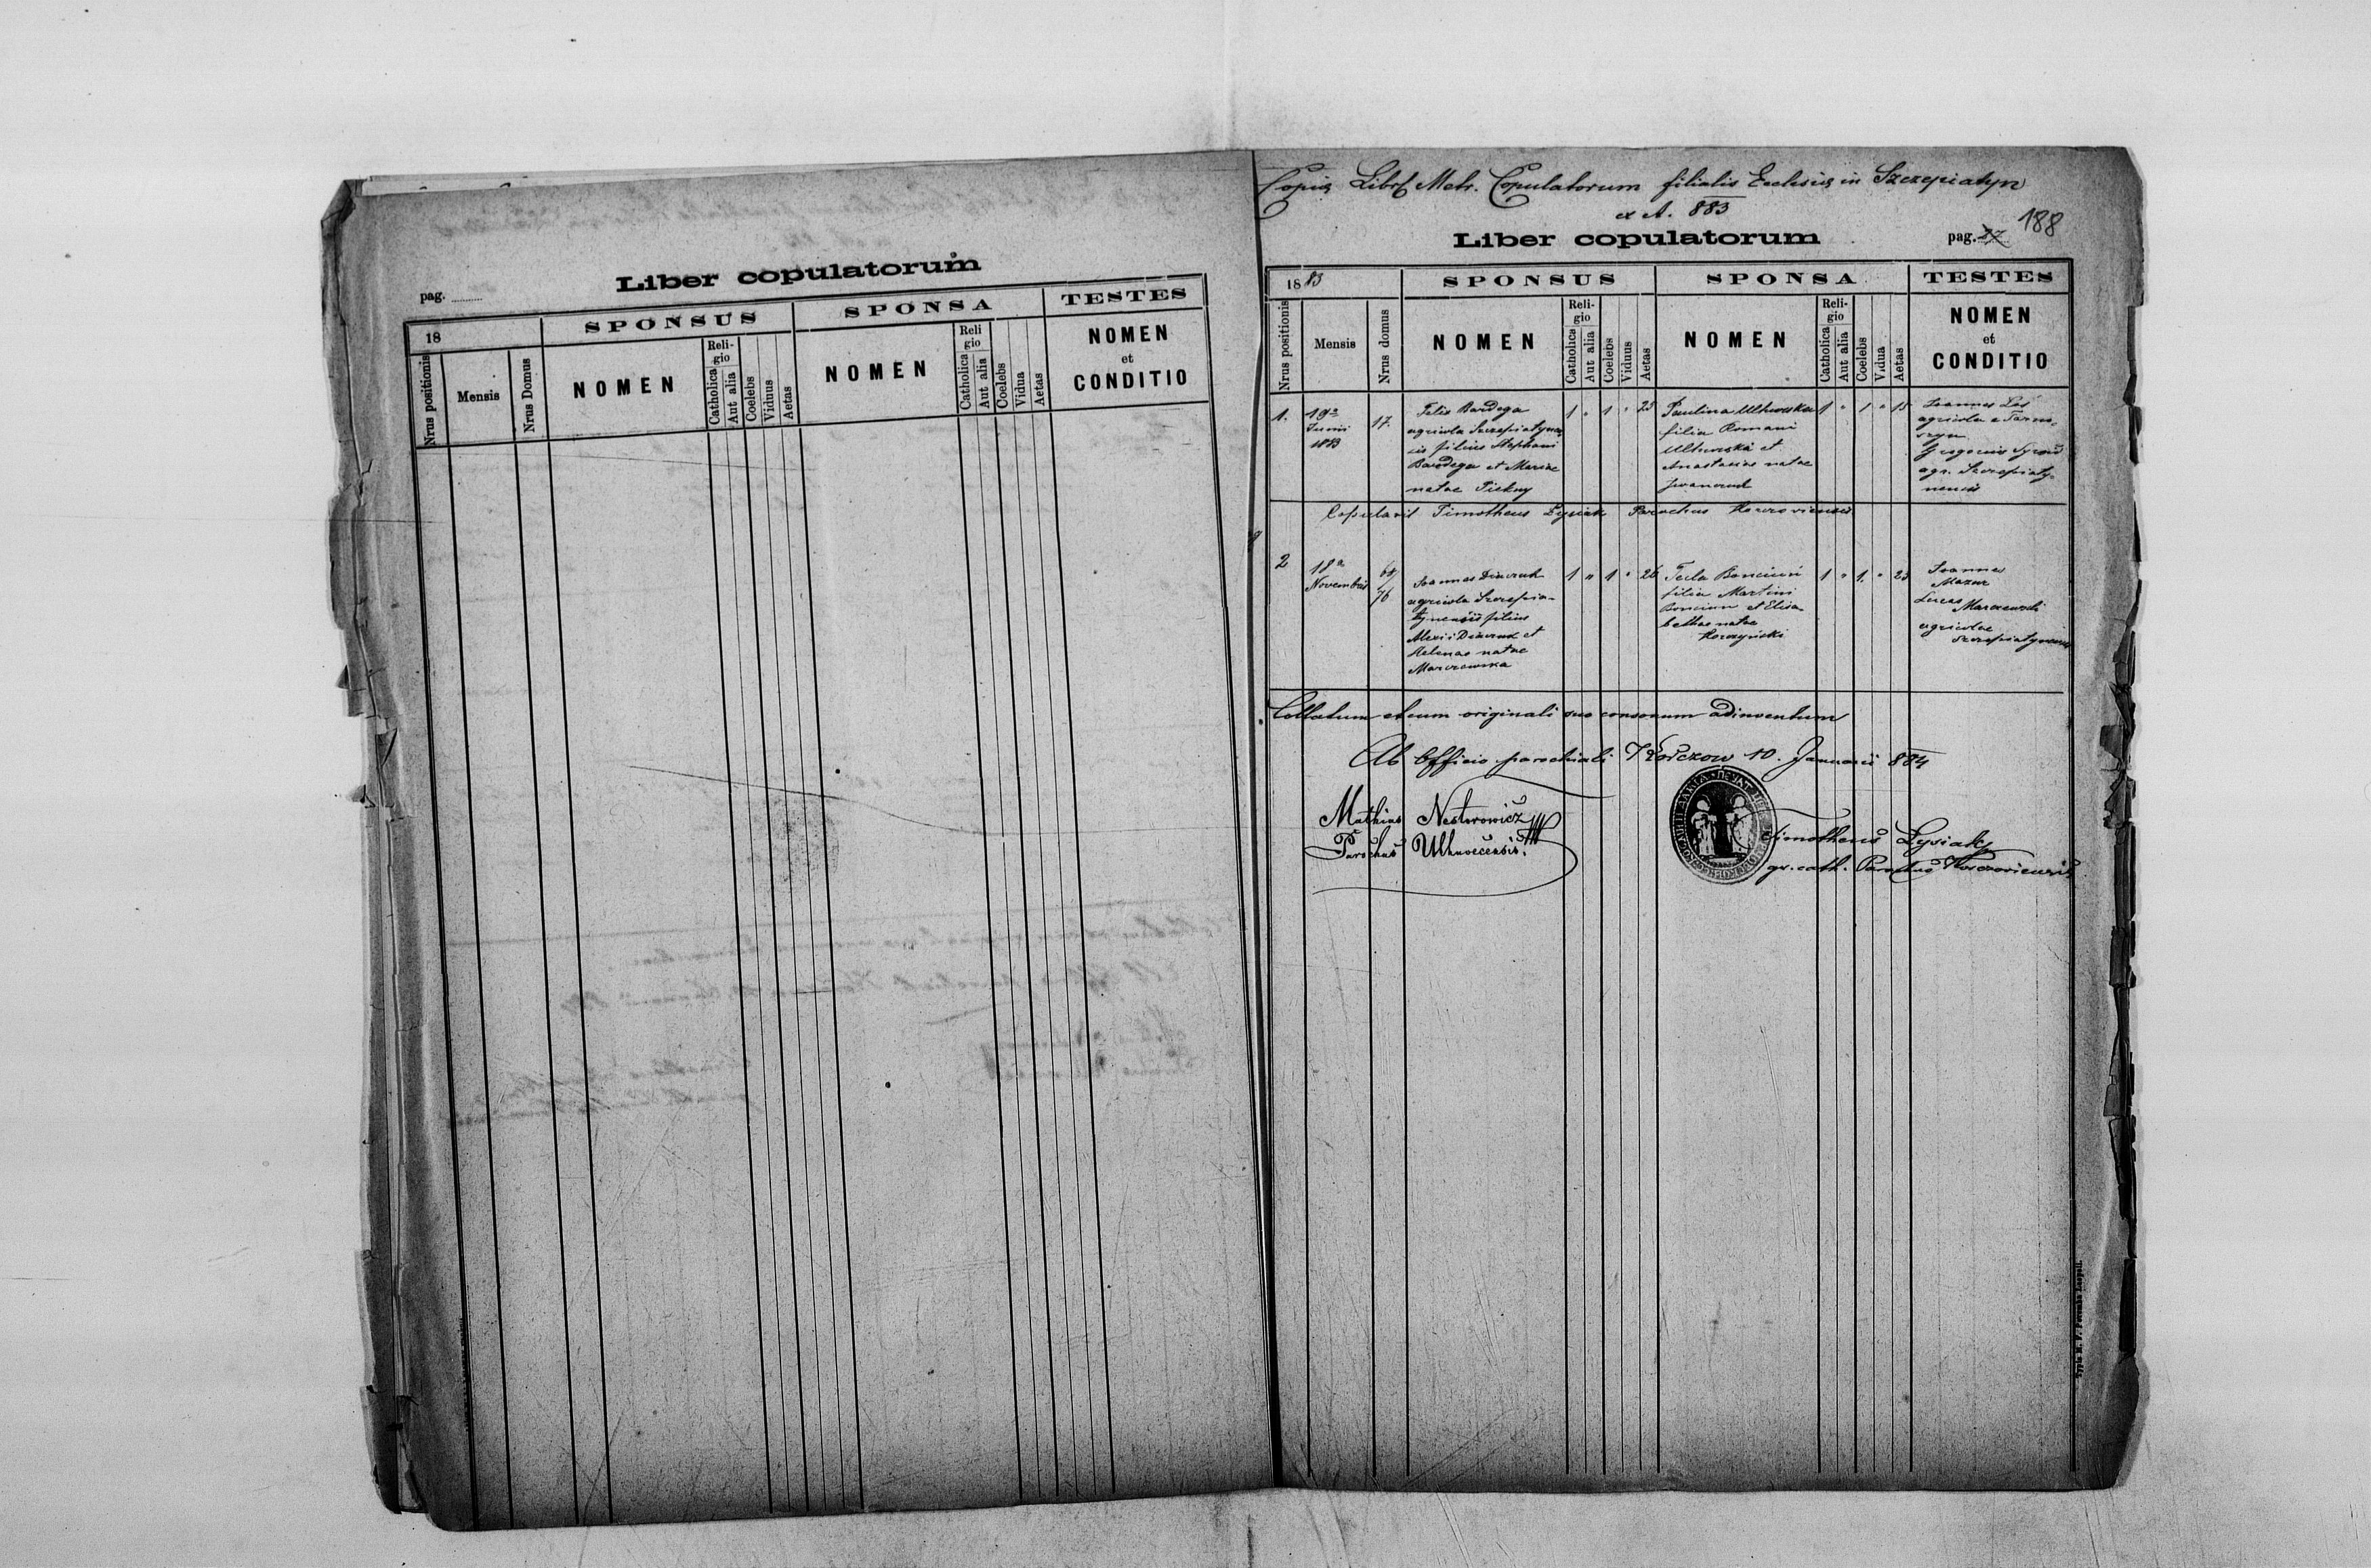 Liber copulatorum
pag.
18
SPONSUS
SPONSA
TESTES
Nrus positionis
Mensis
Nrus Domus
NOMEN
Reli-
gio
Catholica
Aut alia
Coelebs
Viduus
Aetas
NOMEN
Reli
gio
Catholica
Aut alia
Coelebs
Vidua
Aetas
NOMEN
et
CONDITIO
Copia Libri Metr. Copulatorum filialis Ecclesiae in Szczepiatyn
ex A. 883
Liber copulatorum
pag. 188
1883
SPONSUS
SPONSA
TESTES
Nrus positionis
Mensis
Nrus domus
NOMEN
Reli-
gio
Catholica
Aut alia
Coelebs
Viduus
Aetas
NOMEN
Reli-
gio
Catholica
Aut alia
Coelebs
Vidua
Aetas
NOMEN
et
CONDITIO
1.
19a
Junii
1883
17.
Felix Bardega
agricola Szczepiatynen
sis filius Stephani
Bardega et Mariae
natae Piekny
1 " 1 " 25
Paulina Uhnowska
filia Romani
Uhnowski et
Anastasiae natae
Iwanczuk
1 " 1 " 18
Joannes Las
agricola e Tarno
szyn
Gregorius
agr. Szczepiaty-
nensis
Copulavit Timotheus Łysiak Parochus Korczoviensis
2
18a
Novembris
68/
76
Joannes Diaczuk
agricola Szczepia-
tynensis filius
Alexii Diaczuk et
Helenae natae
Marczewska
1 " 1 " 26
Tecla
filia Martini
et Elisa
bethae natae
Korczyński
1 " 1. " 23
Joannes
Mazur
Lucas
Marczewski
agricolae
Szczepiatynenses
Collatum et cum originali suo consonum adinventum
Ab Officio parochiali Korczow 10. Januarii 884
Mathias Nestorowicz
Parochus Uhnovecensis.
Timotheus Łysiak
gr. cath. Parochus Korczoviensis